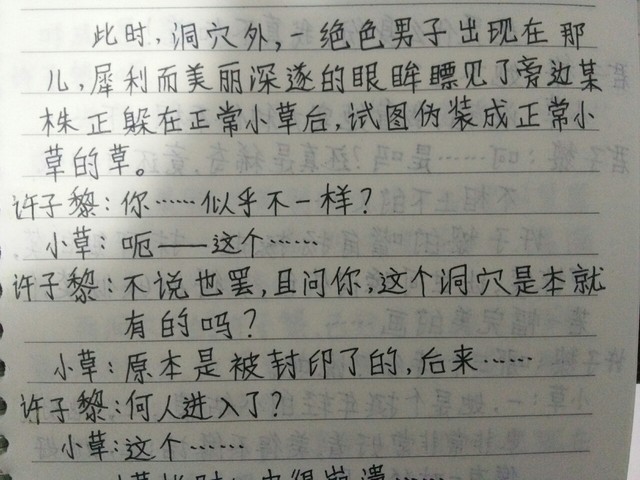 此时,洞穴外,一绝色男子出现在那
儿,犀利而美丽深邃的眼眸瞟见了旁边某
株正躲在正常小草后,试图伪装成正常小
草的草。
许子黎:你……似乎不一样?
小草:呃——这个……
许子黎:不说也罢,且问你,这个洞穴是本就
有的吗?
小草:原本是被封印了的,后来……
许子黎:何人进入了?
小草:这个……